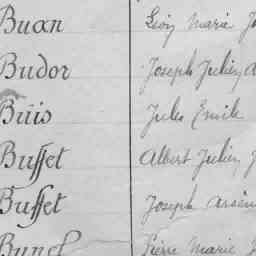 Buan Léon Marie J
Budor Joseph Julien A
Buis Jules Emile
Buffet Albert Julien J
Buffet Joseph Arsène
Bunel Pierre Marie J